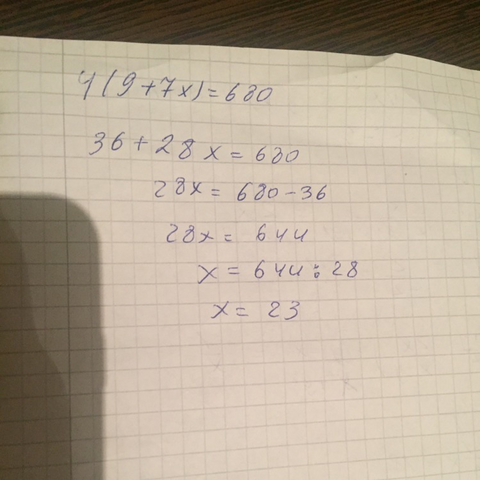 4(9+7x)=680
36+28x=680
28x=680-36
28x=644
x=644:28
x=23